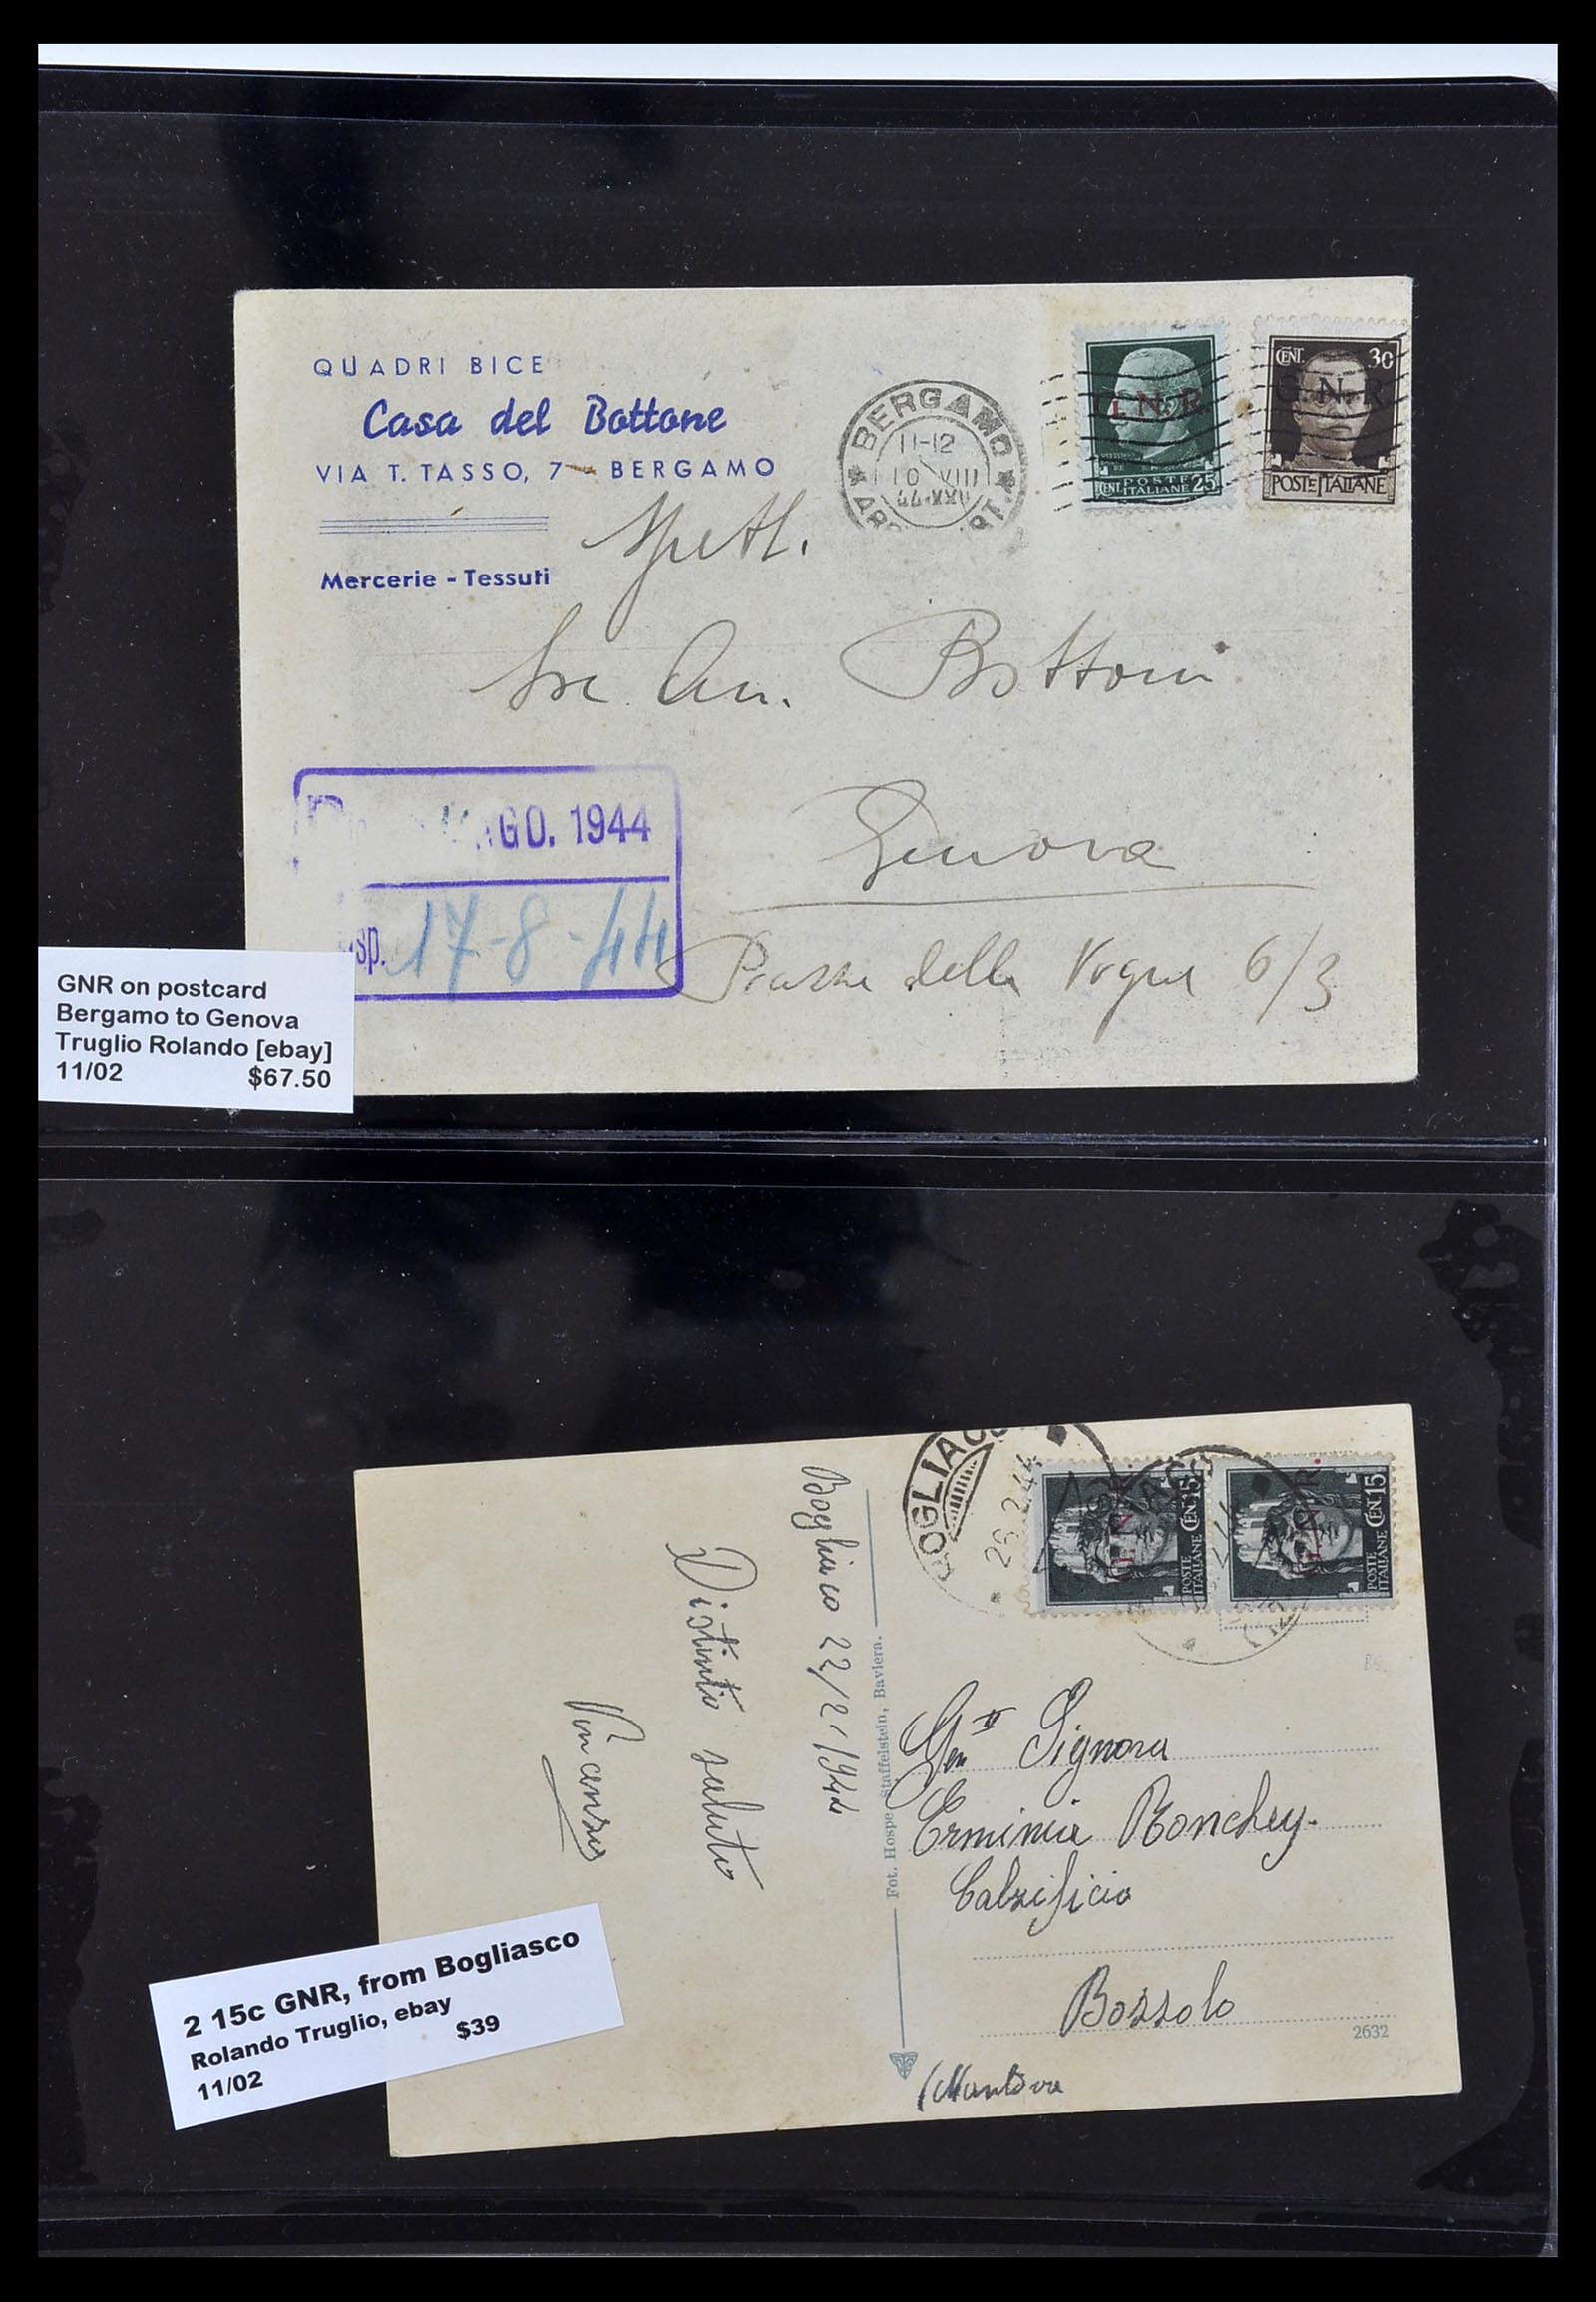 QUADRI BICE
Casa del Bottone
VIA T. TASSO, 7 - BERGAMO
Mercerie - Tessuti
BERGAMO
11-12
10 VIII
44•XXII
G.N.R.
POSTE
ITALIANE
CENT. 25
CENT. 30
G.N.R.
POSTE ITALIANE
Spett.
An. Bottoni
Genova
6/3
AGO. 1944
sp. 17-8-44
GNR on postcard
Bergamo to Genova
Truglio Rolando [ebay]
11/02 $67.50
BOGLIASCO
26.2.44
G.N.R.
POSTE
ITALIANE CEN. 15
G.N.R.
POSTE
ITALIANE CEN. 15
Bogliasco 22/2/1944
Distinti saluti
Vincenzo
Fot. Hospe, Staffelstein, Baviera.
Gen Signora
Erminia Ronchey.
Calzificio
Bozzolo
(Mantova
2632
2 15c GNR, from Bogliasco
Rolando Truglio, ebay
$39
11/02